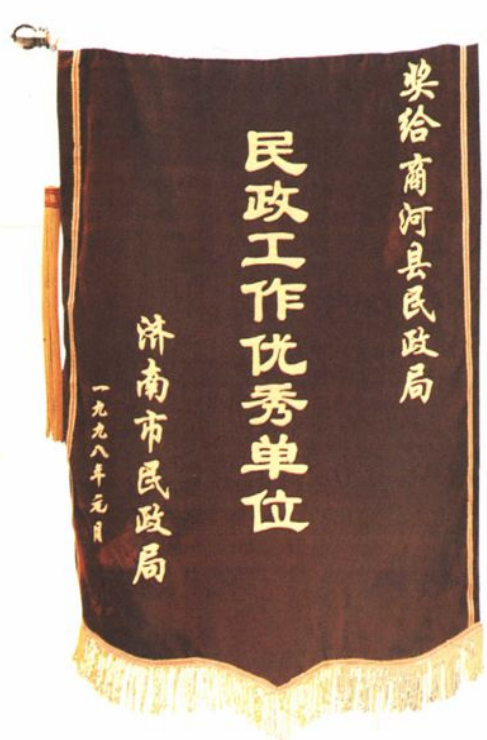 奖给商河县民政局
民政工作优秀单位
济南市民政局
一九九八年元月